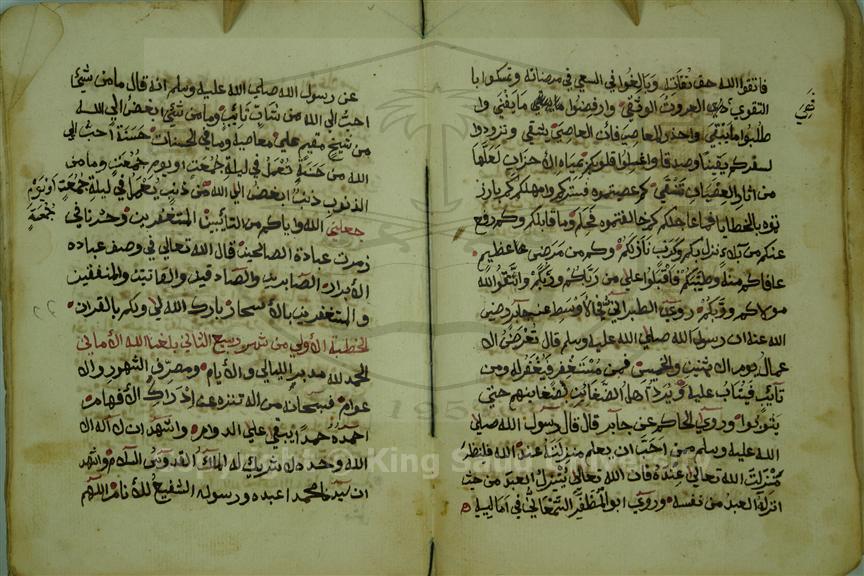 فاتقوا الله حق تقاته وبالغوا في السعي في مرضاته وتمسكوا با
التقوي فهي العروت الوثقي وارفضوا ما يفني وا
طلبوا ما يبقي واحذر المعاصي فان العاصي يشقي وتزودوا
لسفركم يقينا وصدقا واغسلوا قلوبكم بمياه الاحزان لعلها
من اثار العصيان تنقي كم عصيتموه فستركم وامهلكم كم بارز
توه بالخطايا فما عاجلكم كم خالفتموه فحلم وما قابلكم وكم دفع
عنكم من بلاء نزل بكم وكرب نازلكم وكم من مرض عا عظيم
عافاكم منه وطبيبكم فاقبلوا علي من رباكم وربكم واتقوا الله
مولاكم وربكم روي الطبراني في الاوسط عن جابر رضي
الله عنه ان رسول الله صلي الله عليه وسلم قال تعرض الا
عمال يوم الاثنين والخميس فمن مستغفر فيغفر له ومن
تائب فيتاب عليه ويرد اهل الضغائن لضغاينهم حتي
يتوبوا وروي الحاكم عن جابر قال قال رسول الله صلي
الله عليه وسلم من احب ان يعلم منزلته عند الله فلينظر
منزلت الله تعالي عنده فان الله تعالي ينزل العبد من حيث
انزله العبد من نفسه وروي ابو المظفر السمعاني في اماليه
فهي
عن رسول الله صلي الله عليه وسلم انه قال ما من شئ
احب الي الله من شاب تائب وما من شئ ابغض الي الله
من شيخ مقيم علي معاصيه وما في الحسنات حسنة احب الي
الله من حسنة تعمل في ليلة جمعت او يوم جمعت وما من
الذنوب ذنب ابغض الي الله من ذنب يعمل في ليلة جمعة او يوم
جمعة
جعلني الله واياكم من التائبين المستغفرين وحشرنا في
زمرت عبادة الصالحين قال الله تعالي في وصف عباده
الابرار الصابرين والصادقين والقانتين والمنفقين
والمستغفرين بالاسحار بارك الله لي ولكم بالقران
الخطبة الاولي من شهر ربيع الثاني بلغنا الله الاماني
الحمد لله مدبر الليالي والايام ومصرف الشهور والا
عوام فسبحانه من اله تنزه عن ادراك الافهام
احمده حمدا يبقي علي الدوام واشهد ان لا اله الا
الله وحده لا شريك له الملك القدوس السلام واشهد
ان سيدنا محمدا عبده ورسوله الشفيع للانام اللهم
Copyright © King Saud University
1957